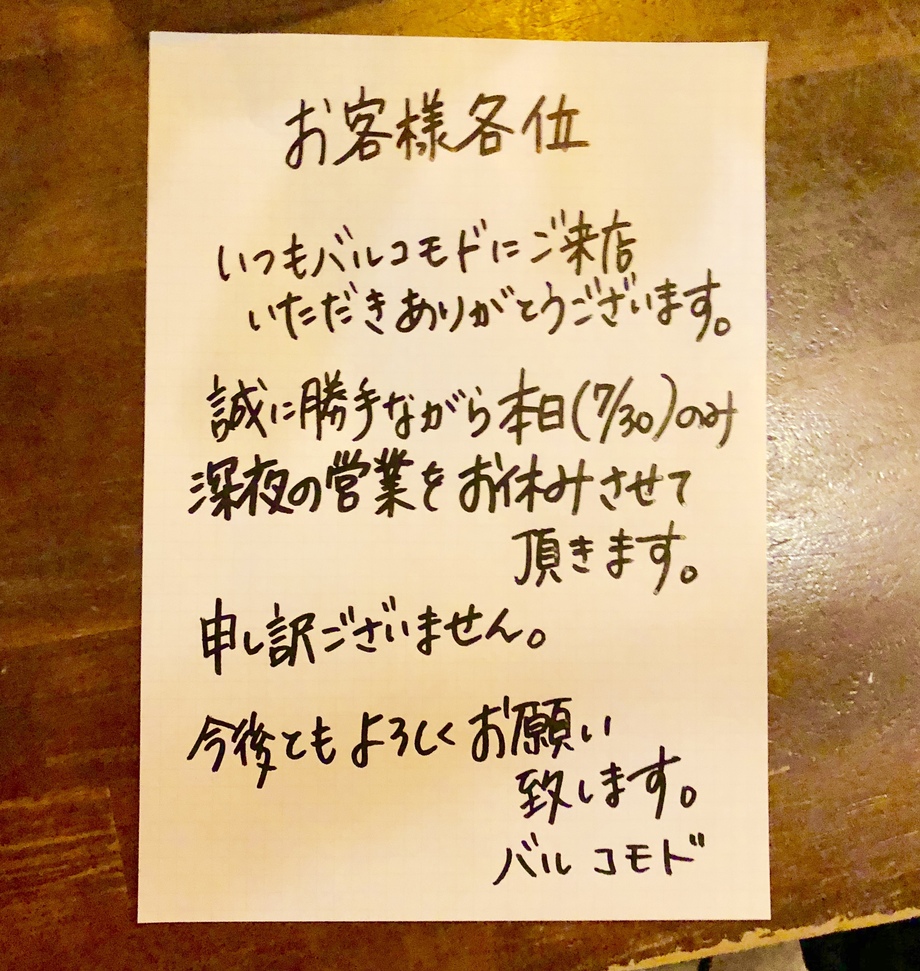 お客様各位
いつもバルコモドにご来店
いただきありがとうございます。
誠に勝手ながら本日(7/30)のみ
深夜の営業をお休みさせて
頂きます。
申し訳ございません。
今後ともよろしくお願い
致します。
バルコモド